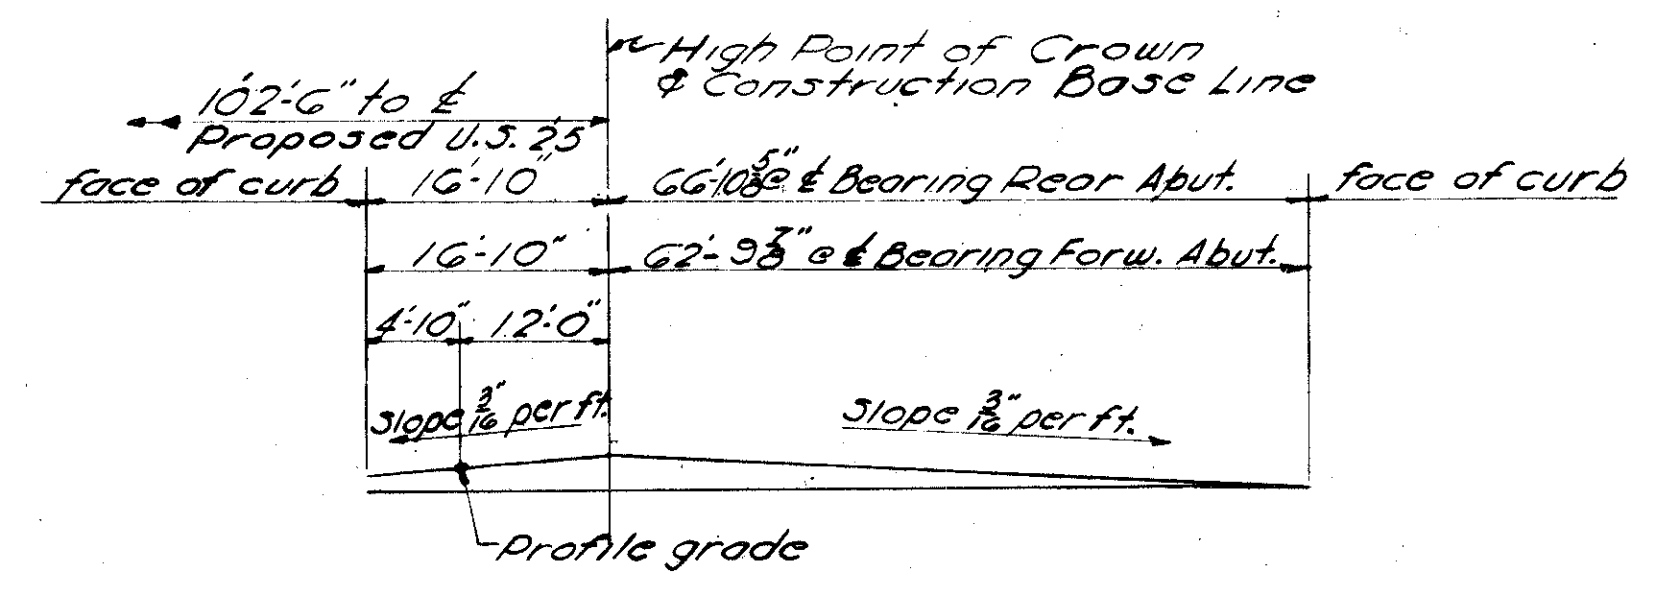 High Point of Crown
& Construction Base Line
102'-6" to ℄
Proposed U.S. 25
face of curb
16'-10"
66'-10⅝" @ ℄ Bearing Rear Abut.
face of curb
16'-10"
62'-9⅞" @ ℄ Bearing Forw. Abut.
4'-10"
12'-0"
Slope 3/16" per ft.
Slope 3/16" per ft.
Profile grade